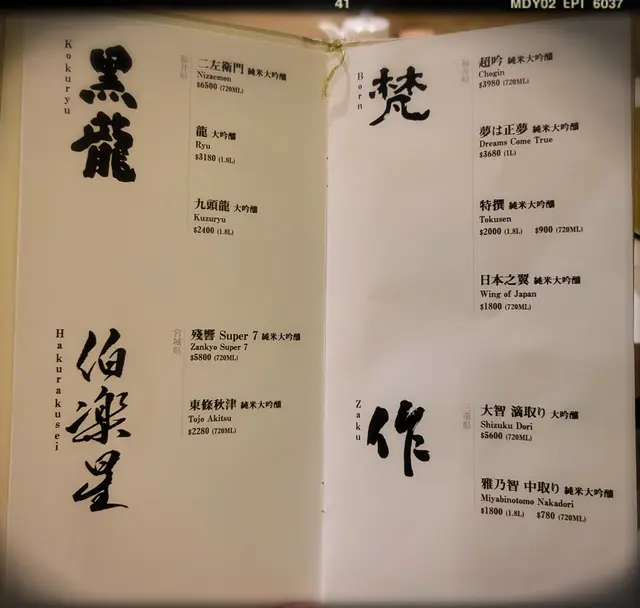 41
MDY02 EPI 6037
Kokuryu
黒龍
福井県
二左衛門 純米大吟醸
Nizaemon
$6500 (720ML)
龍 大吟醸
Ryu
$3180 (1.8L)
九頭龍 大吟醸
Kuzuryu
$2400 (1.8L)
Hakurakusei
伯楽星
宮城県
殘響 Super 7 純米大吟醸
Zankyo Super 7
$5800 (720ML)
東條秋津 純米大吟醸
Tojo Akitsu
$2280 (720ML)
Born
梵
福井県
超吟 純米大吟醸
Chogin
$3980 (720ML)
夢は正夢 純米大吟醸
Dreams Come True
$3680 (1L)
特撰 純米大吟醸
Tokusen
$2000 (1.8L) $900 (720ML)
日本之翼 純米大吟醸
Wing of Japan
$1800 (720ML)
Zaku
作
三重県
大智 滴取り 大吟醸
Shizuku Dori
$5600 (720ML)
雅乃智 中取り 純米大吟醸
Miyabinotomo Nakadori
$1800 (1.8L) $780 (720ML)